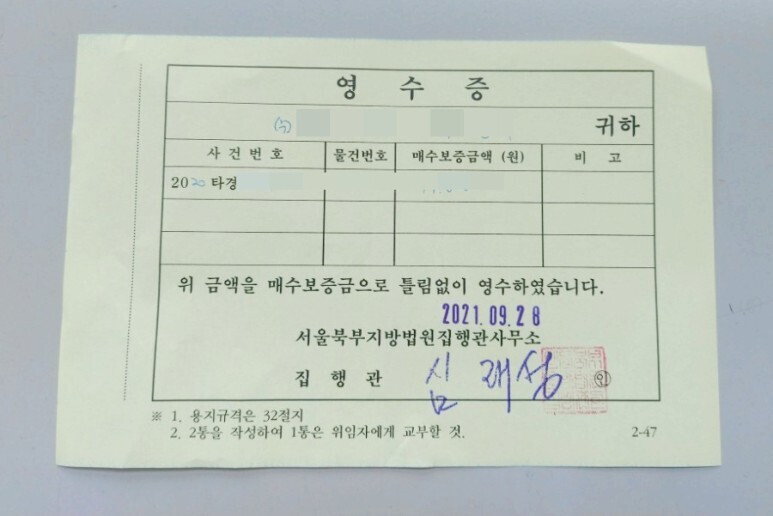 영 수 증
㈜ 귀하
사 건 번 호 물건번호 매수보증금액 (원) 비 고
2020 타경
위 금액을 매수보증금으로 틀림없이 영수하였습니다.
2021.09.28
서울북부지방법원집행관사무소
집 행 관 심 래 성 ㊞
※ 1. 용지규격은 32절지
2. 2통을 작성하여 1통은 위임자에게 교부할 것.
2-47